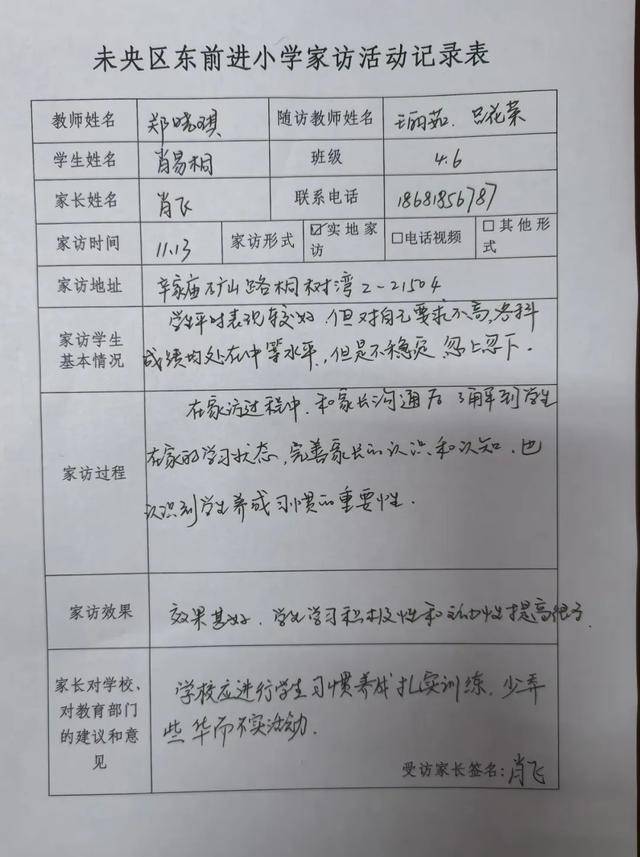 未央区东前进小学家访活动记录表
教师姓名 郑晓琪 随访教师姓名 王丽茹、吕花荣
学生姓名 肖易桐 班级 4.6
家长姓名 肖飞 联系电话 18681856787
家访时间 11.13 家访形式 ☑实地家访 □电话视频 □其他形式
家访地址 辛家庙矿山路桐树湾2-21504
家访学生基本情况
学生平时表现较好,但对自己要求不高,各科
成绩均处在中等水平,但是不稳定 忽上忽下.
家访过程
在家访过程中,和家长沟通后 了解到学生
在家的学习状态,完善家长的认识和认知,也
认识到学生养成习惯的重要性.
家访效果
效果甚好.学生学习积极性和主动性提高很多.
家长对学校、对教育部门的建议和意见
学校应进行学生习惯养成扎实训练,少弄
些华而不实活动.
受访家长签名:肖飞